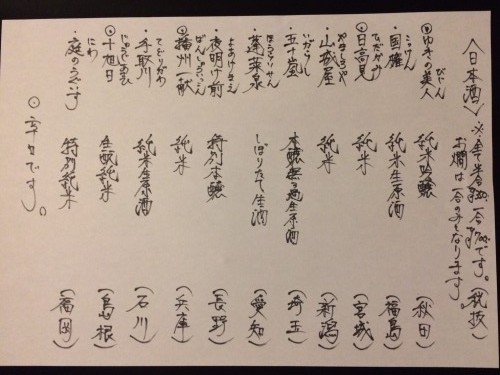 〈日本酒〉 ※全て半合 一合 です。(税抜)
お燗は一合のみとなります。
びじん
ゆきの美人 純米吟醸 (秋田)
こっけん
・国権 純米生原酒 (福島)
ひたかみ
⊙日高見 純米 (宮城)
やましろや
・山城屋 純米 (新潟)
いがらし
・五十嵐 本醸無濾過生原酒 (埼玉)
ほうらいせん
・蓬莱泉 しぼりたて生酒 (愛知)
よあけまえ
・夜明け前 特別本醸 (長野)
ばんしゅういっこん
⊙播州一献 純米 (兵庫)
てどりがわ
・手取川 純米生原酒 (石川)
じゅうじあさひ
⊙十旭日 生酛純米 (島根)
にわ
・庭のうぐいす 特別純米 (福岡)
⊙辛口です。